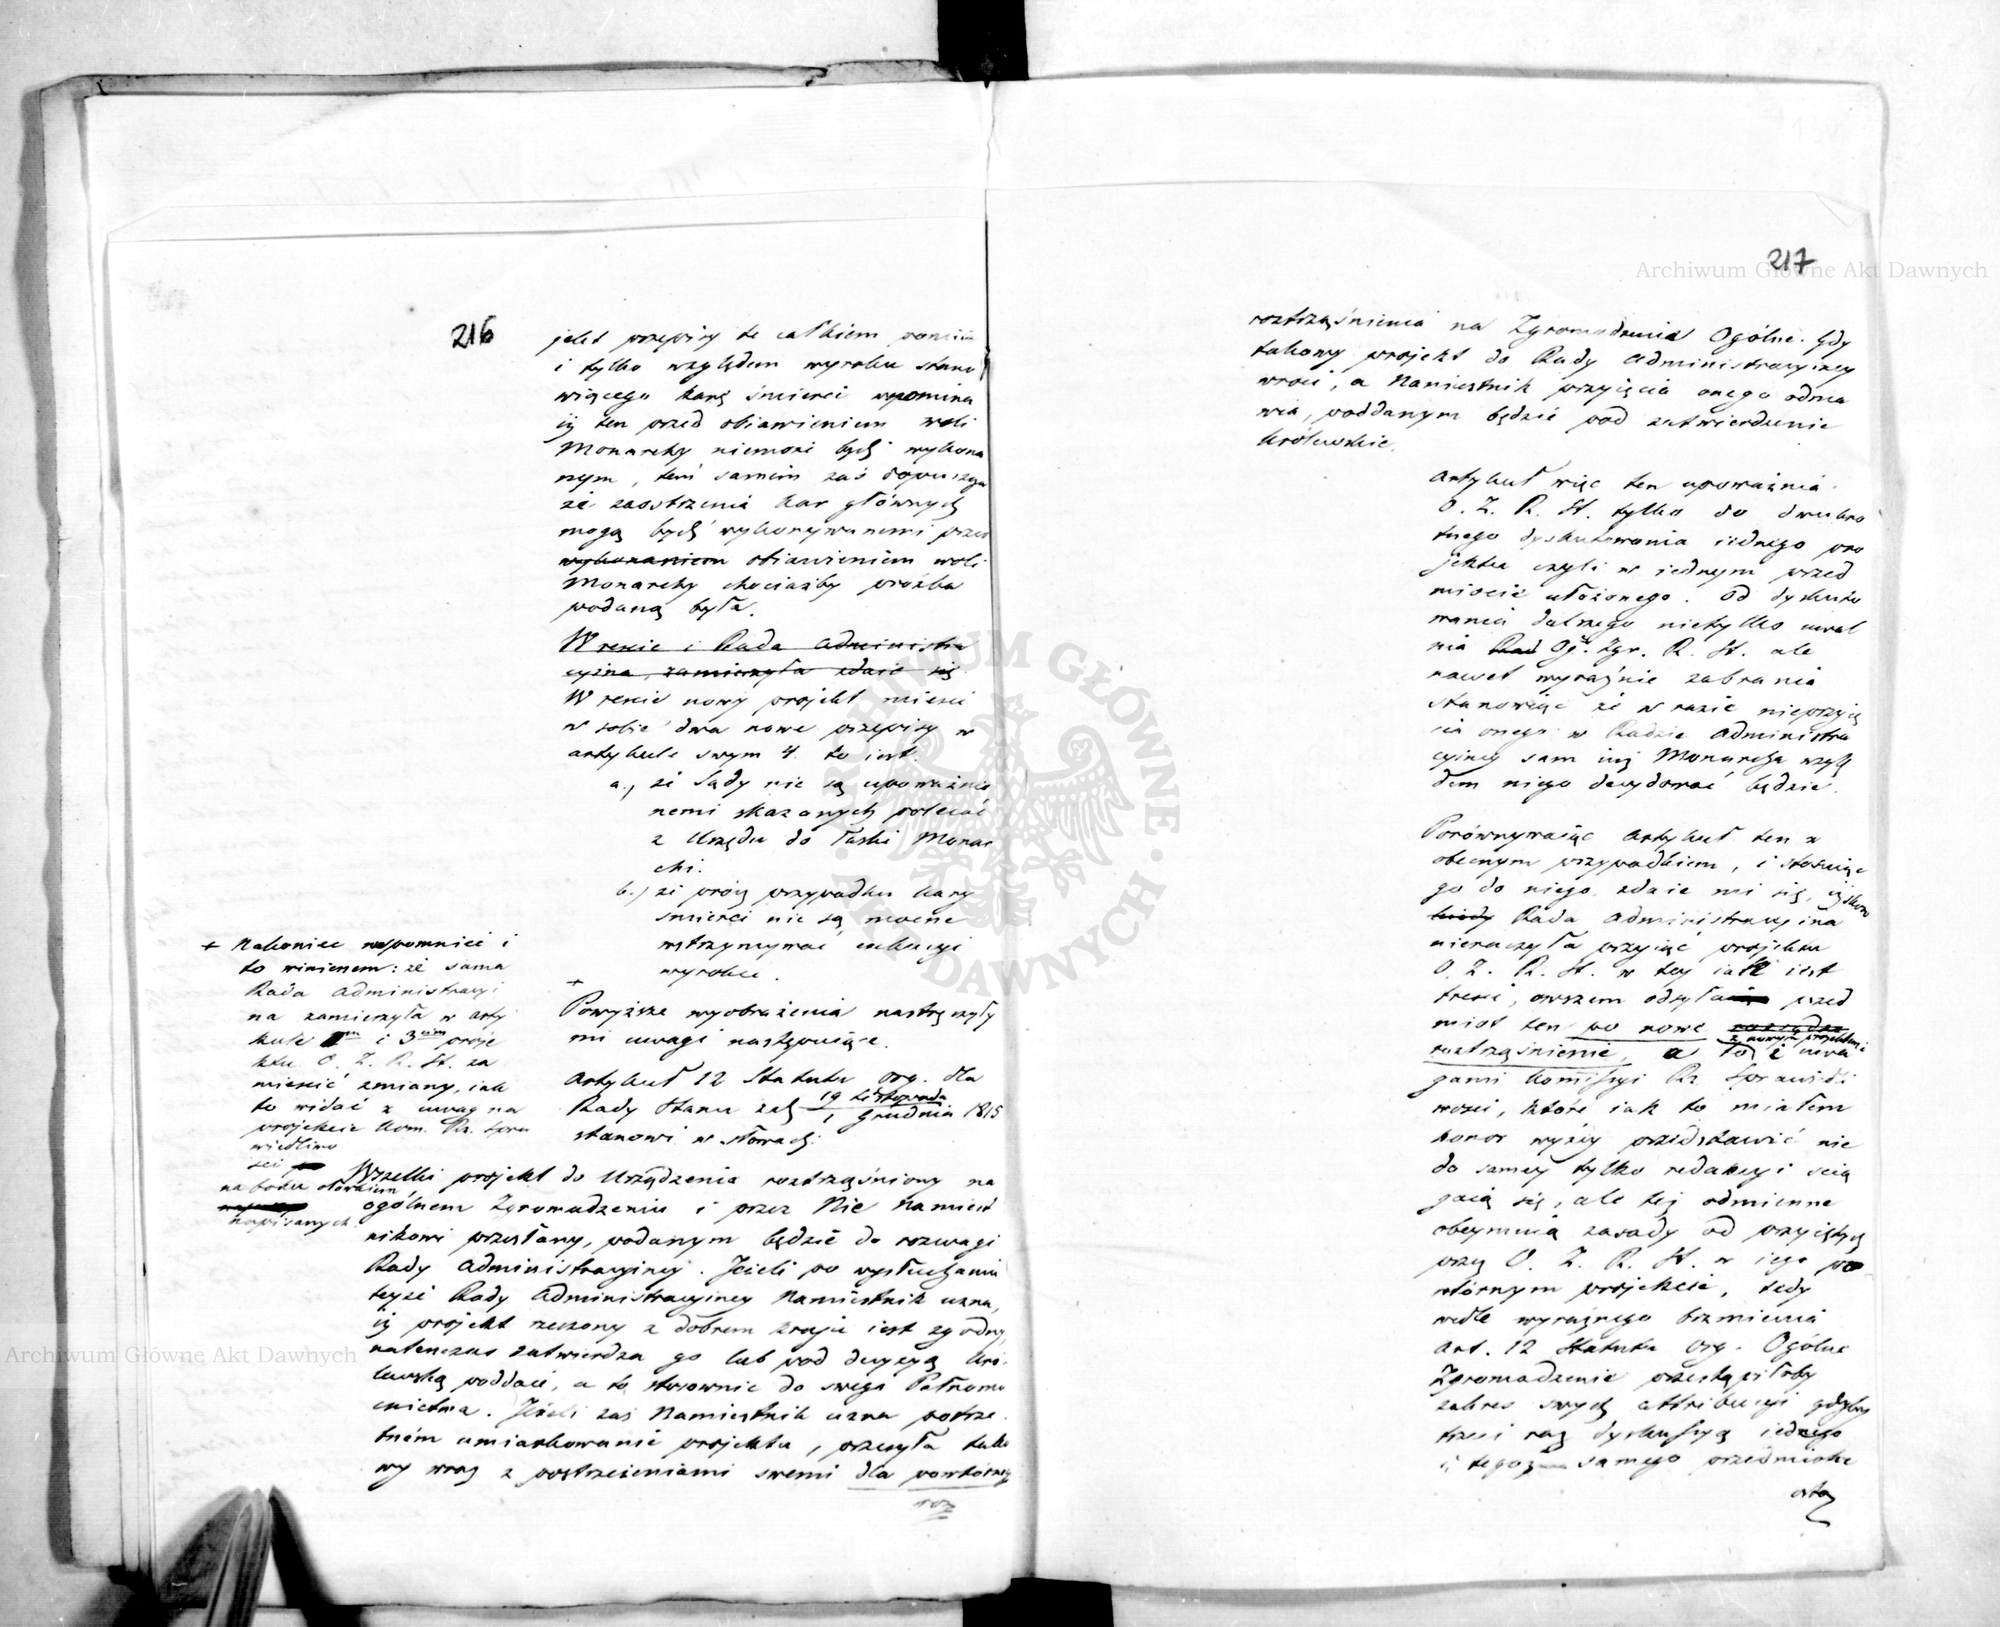 216
jekt przepisy te całkiem pomin
i tylko względem wyroku stano
wiącego karę śmierci wpomina
iż ten przed obiawieniem woli
Monarchy niemoże bydź wykona
nym, tem samem zaś dopuszcza
że zaostrzenia kar głównych
mogą bydź wykonywanemi przed
wykonaniem obiawieniem woli
Monarchy chociażby prośba
podaną była.
W rzecie i Rada Administra
cyina, zamierzyła zdaie się
W rzecie nowy projekt mieści
w sobie dwa nowe przepisy w
artykule swym 4. to iest.
a., że Sądy nie są upoważnio
nemi skazanych polecać
z Urzędu do łaski Monar
chi.
b., że prócz przypadku kary
śmierci nie są mocne
wstrzymywać exekucyi
wyroku.
+
+ Nakoniec wspomnieć i
to winienem: że sama
Rada Administracyi
na zamierzyła w arty
kule 2m i 3cim proje
ktu O. Z. R. St. za
mieścić zmiany, iak
to widać z uwag na
projekcie Kom. Rz. Spra
wiedliwo
ści
na boku ołówkiem
napisanych.
Powyższe wyobrażenia nastręczyły
mi uwagi następuiące.
Artykuł 12 Statutu org. dla
Rady Stanu z d. 19 Listopada
1 Grudnia 1815
stanowi w słowach:
Wszelki projekt do Urządzenia roztrząśniony na
ogólnem Zgromadzeniu i przez Nie Namiest
nikowi przesłany, podanym będzie do rozwagi
Rady Administracyiney. Jeżeli po wysłuchaniu
teyże Rady Administracyiney Namiestnik uzna,
iż projekt rzeczony z dobrem kraju iest zgodny,
natenczas zatwierdza go lub pod decyzyą Kró-
lewską poddaie, a to stosownie do swego Pełnomo
cnictwa. Jeżeli zaś Namiestnik uzna potrze
bném umiarkowanie projektu, przesyła tako
wy wraz z postrzeżeniami swemi dla powtórnego
roz
217
roztrząśnienia na Zgromadzenie Ogólne. Gdy
takowy projekt do Rady Administracyiney
wróci, a Namiestnik przyięcia onego odma
wia, poddanym będzie pod zatwierdzenie
Królewskie.
Artykuł więc ten upoważnia
O. Z. R. St. tylko do dwukro
tnego dyskutowania iednego pro
jektu czyli w iednym przed
miocie ułożonego. Od dyskuto
wania dalszego nietylko uwal
nia Og. Zgr. R. St. ale
nawet wyraźnie zabrania
stanowiąc że w razie nieprzyię
cia onego w Radzie Administra
cyiney sam iuż Monarcha wzglę
dem niego decydować będzie.
Porównywaiąc Artykuł ten z
obecnym przypadkiem, i stosuiąc
go do niego zdaie mi się, iż skoro
kiedy Rada Administracyina
nieraczyła przyiąć projektu
O. Z. R. St. w tey iak iest
treści, owszem odsyła przed
miot ten po nowe
z nowym projektem i
roztrząśnienie, a to z uwa
gami Komissyi Rz. Sprawiedli
wości, które iak to miałem
honor wyżéy przedstawić nie
do samey tylko redakcyi ścią
gaią się, ale też odmienne
obeymuią zasady od przyiętych
przez O. Z. R. St. w iego po
wtórnym projekcie, tedy
wedle wyraźnego brzmienia
Art. 12 Statutu Org. Ogólne
Zgromadzenie przestąpiłoby
zakres swych attribucyi gdyby
trzeci raz dyskussyą iednego
i tegoż samego przedmiotu